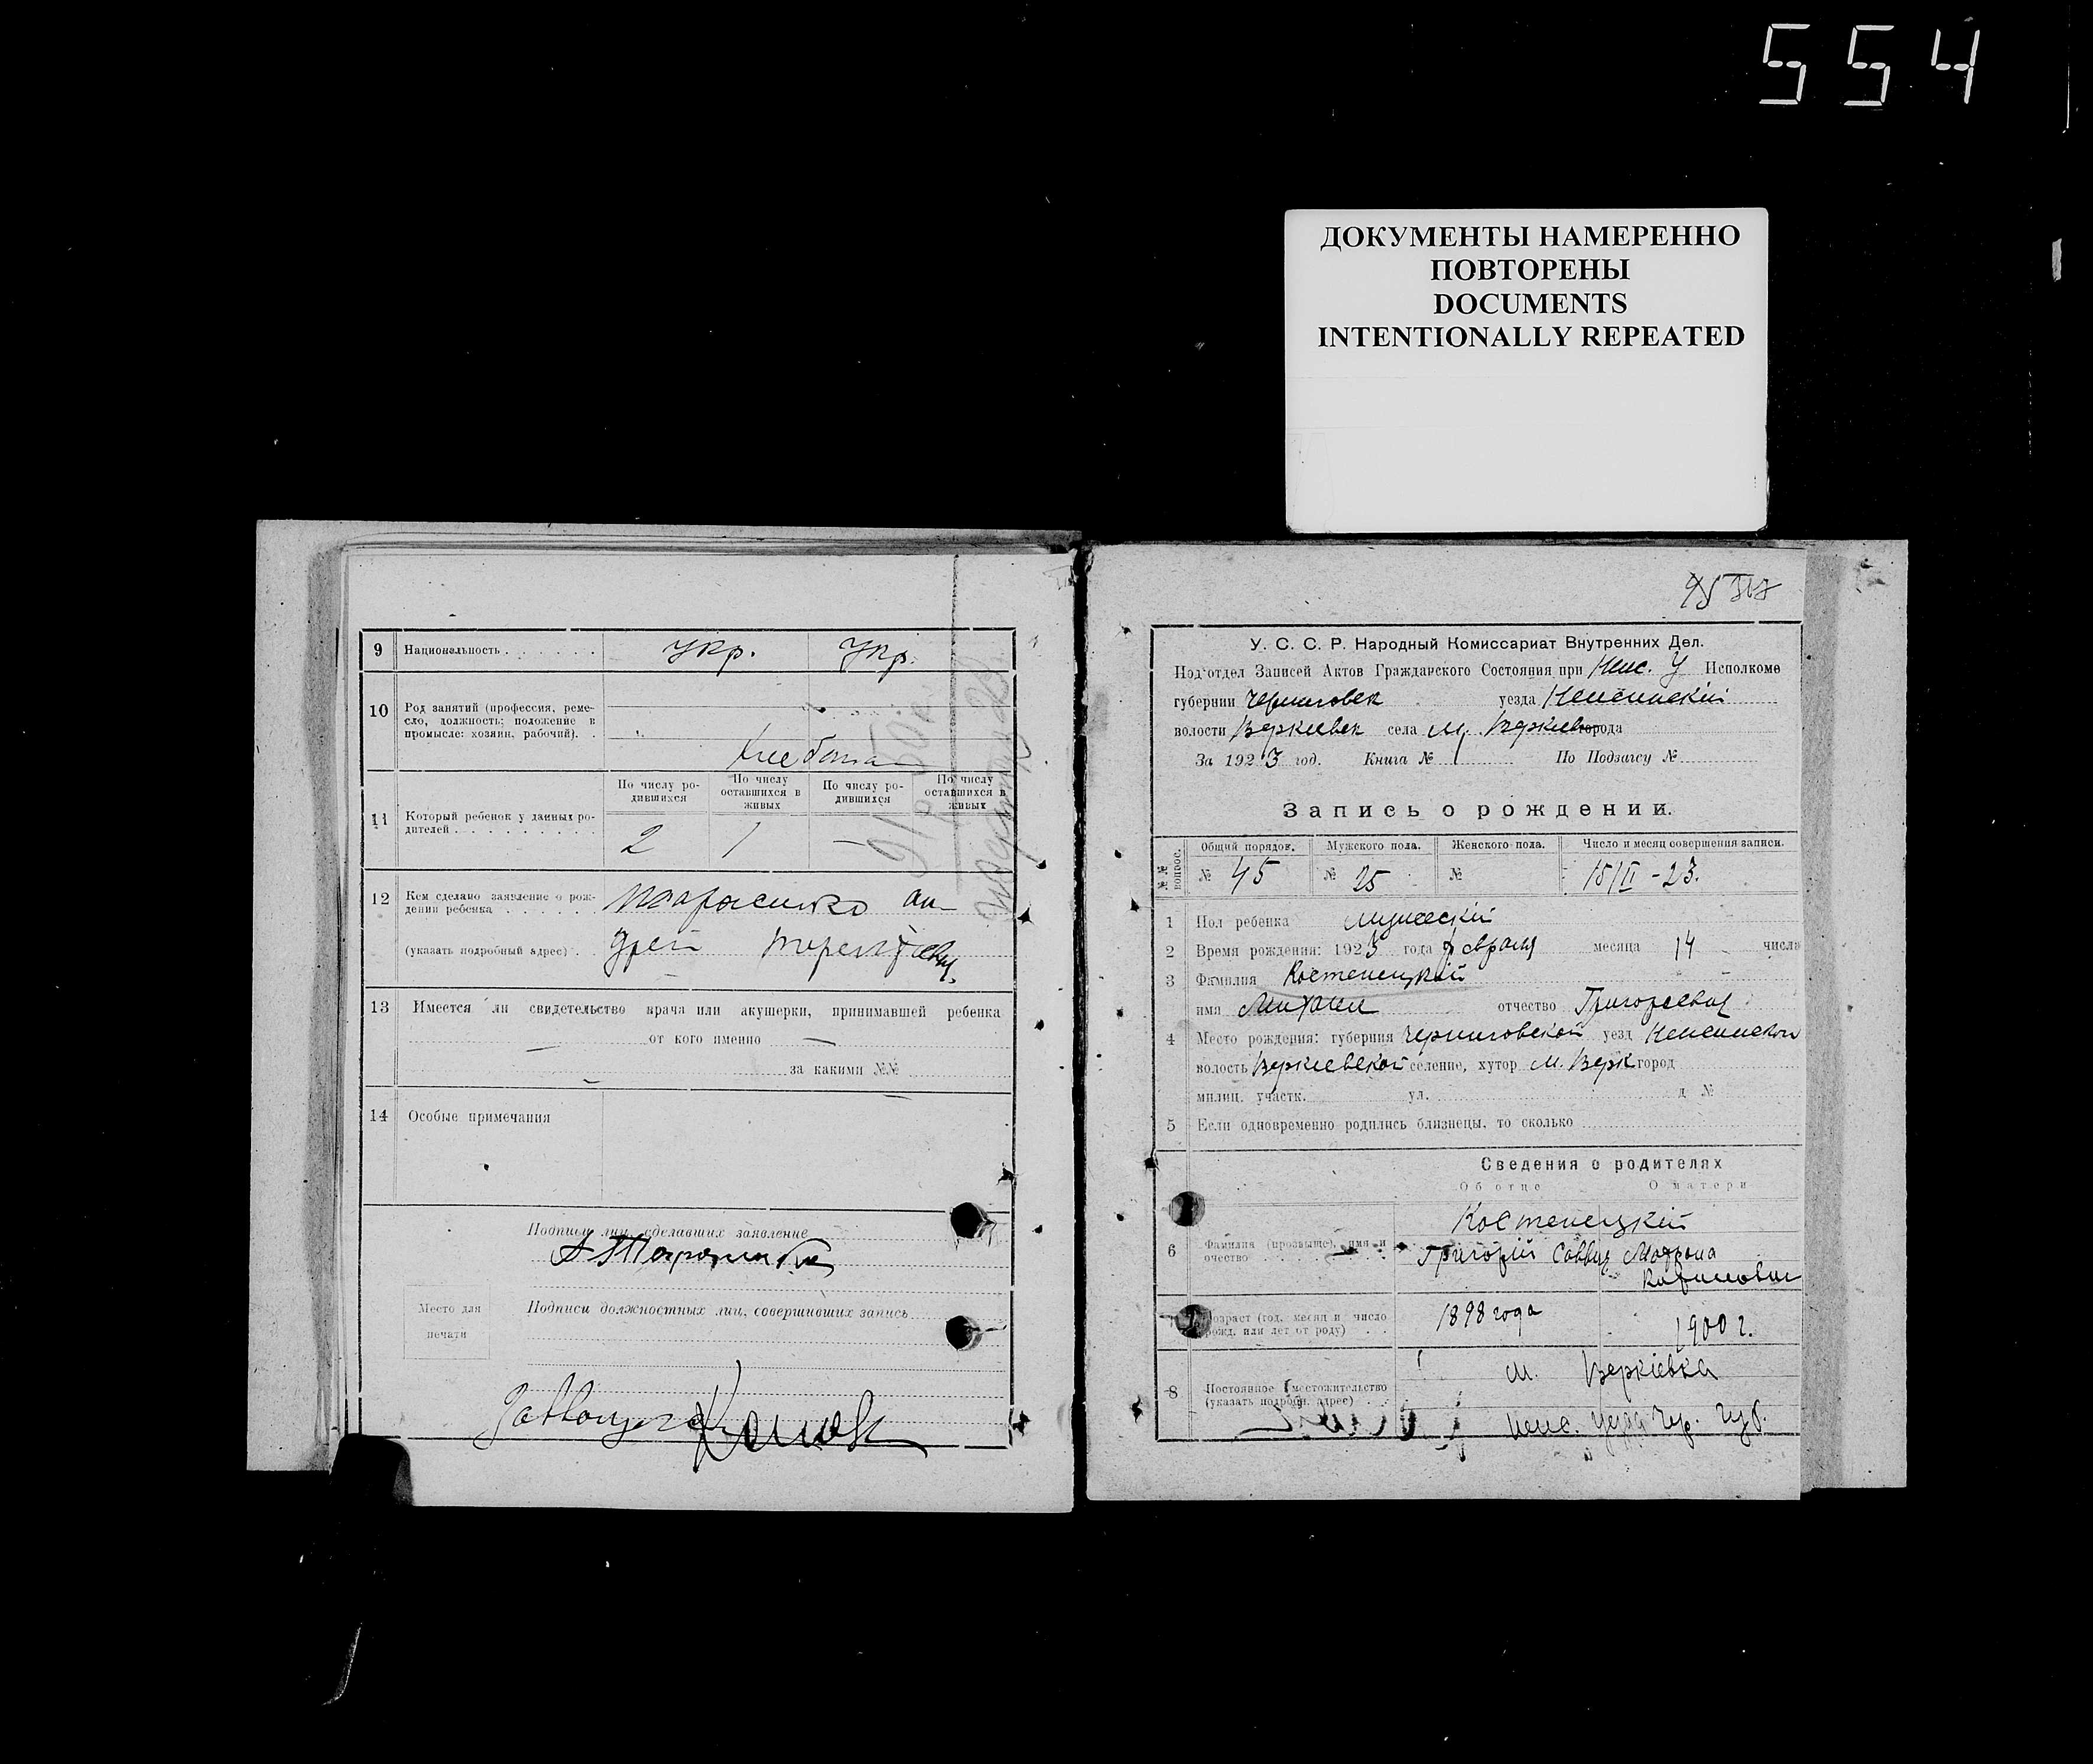 554
ДОКУМЕНТЫ НАМЕРЕННО
ПОВТОРЕНЫ
DOCUMENTS
INTENTIONALLY REPEATED
9 Национальность укр. укр.
10 Род занятий (профессия, реме-
сло, должность; положение в
промысле: хозяин, рабочий).
11 Который ребенок у данных ро-
дителей
По числу ро-
дившихся
По числу
оставшихся в
живых
По числу ро-
дившихся
По числу
оставшихся в
живых
2 1 —
12 Кем сделано заявление о рож-
дении ребенка
(указать подробный адрес)
Тарасенко Ан-
дрей
13 Имеется ли свидетельство врача или акушерки, принимавшей ребенка
— от кого именно —
— за какими №№ —
14 Особые примечания
Подписи лиц, сделавших заявление
Место для
печати
Подписи должностных лиц, совершивших запись
У. С. С. Р. Народный Комиссариат Внутренних Дел.
Подотдел Записей Актов Гражданского Состояния при Неж. У Исполкоме
губернии Черниговск уезда Неженский
волости Веркиевск села м. Веркиев города
За 1923 год. Книга № 1 По Подзагсу №
Запись о рождении.
№№ вопрос.
Общий порядов. Мужского пола. Женского пола. Число и месяц совершения записи.
№ 45 № 25 № 15/II - 23.
1 Пол ребенка мужеский
2 Время рождения: 1923 года февраля месяца 14 числа
3 Фамилия Костенецкий
имя Михаил отчество Григорьевич
4 Место рождения: губерния Черниговской уезд Неженской
волость Веркиевской селение, хутор м. Верк город
милиц. участк. ул. д №
5 Если одновременно родились близнецы, то сколько
Сведения о родителях
Об отце О матери
6 Фамилия (прозвище), имя и
отчество
Костенецкий
Григорий Саввич Матрона
7 Возраст (год, месяц и число
рожд. или лет от роду)
1898 года 1900 г.
8 Постоянное местожительство
(указать подробн. адрес)
м. Веркіевка
Неж. уезд Чер. губ.